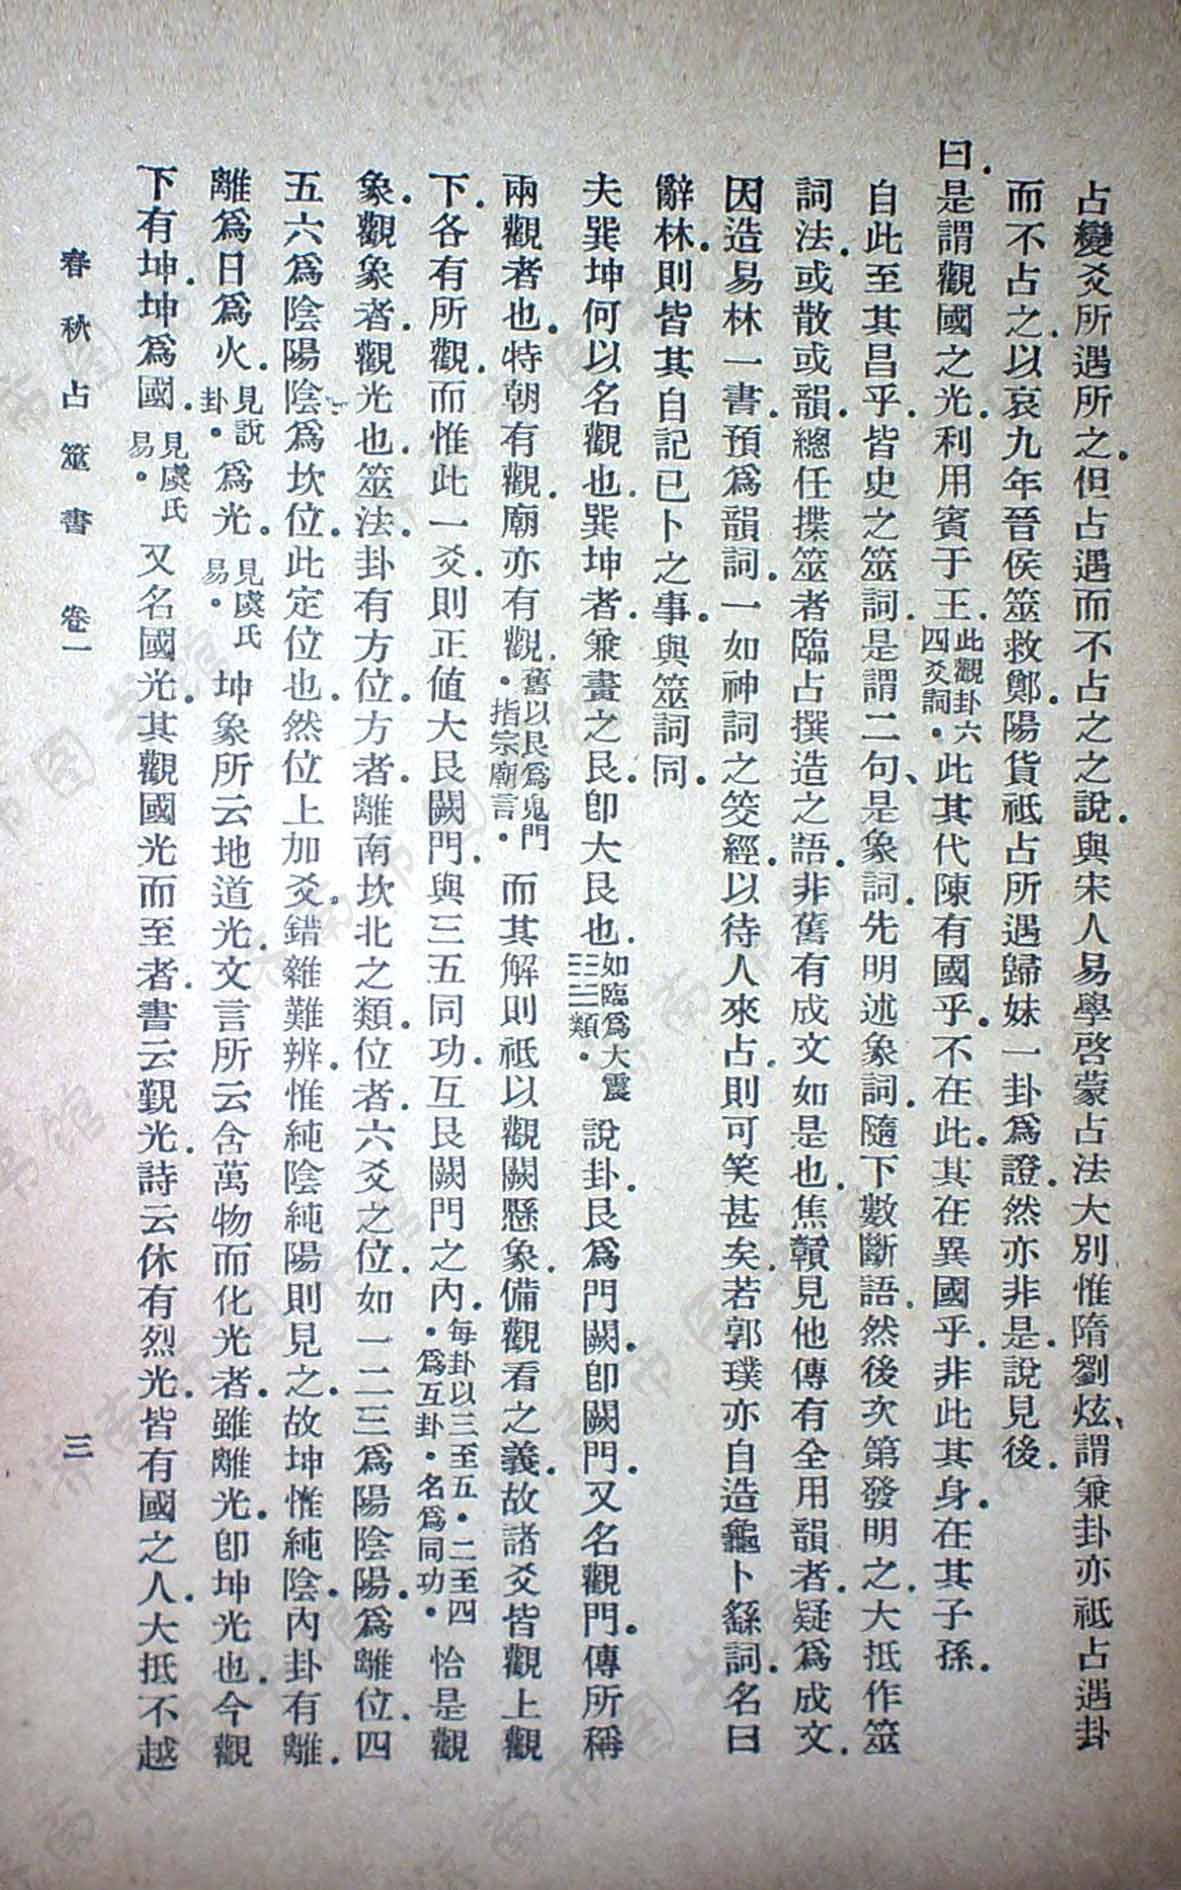 占變爻所遇所之.但占遇而不占之之說.與宋人易學啓蒙占法大別惟隋劉炫、謂兼卦亦祗占遇卦
而不占之.以哀九年晉侯筮救鄭.陽貨祗占所遇歸妹一卦爲證.然亦非是.說見後.
曰.是謂觀國之光.利用賓于王.此觀卦六四爻詞。此其代陳有國乎.不在此.其在異國乎.非此其身.在其子孫.
自此至其昌乎.皆史之筮詞.是謂二句、是象詞.先明述象詞.隨下數斷語.然後次第發明之.大抵作筮
詞法.或散或韻.總任揲筮者臨占撰造之語.非舊有成文如是也.焦贛見他傳有全用韻者.疑爲成文.
因造易林一書.預爲韻詞.一如神詞之筊經.以待人來占.則可笑甚矣.若郭璞亦自造龜卜繇詞.名曰
辭林.則皆其自記已卜之事.與筮詞同.
夫巽坤何以名觀也.巽坤者.兼畫之艮.卽大艮也.如臨爲大震☳類。說卦.艮爲門闕.卽闕門.又名觀門.傳所稱
兩觀者也.特朝有觀.廟亦有觀.舊以艮爲鬼門。指宗廟言。而其解則祗以觀闕懸象.備觀看之義.故諸爻皆觀上觀
下.各有所觀.而惟此一爻.則正値大艮闕門.與三五同功.互艮闕門之內.每卦以三至五。二至四。爲互卦。名爲同功。恰是觀
象.觀象者.觀光也.筮法.卦有方位.方者.離南坎北之類.位者.六爻之位.如一二三爲陽陰陽.爲離位.四
五六爲陰陽陰.爲坎位.此定位也.然位上加爻.錯雜難辨.惟純陰純陽則見之.故坤惟純陰.內卦有離.
離爲日爲火.見說卦。爲光.見虞氏易。坤象所云地道光.文言所云含萬物而化光者.雖離光.卽坤光也.今觀
下有坤.坤爲國.見虞氏易。又名國光.其觀國光而至者.書云覲光.詩云休有烈光.皆有國之人.大抵不越
春秋占筮書 卷一 三